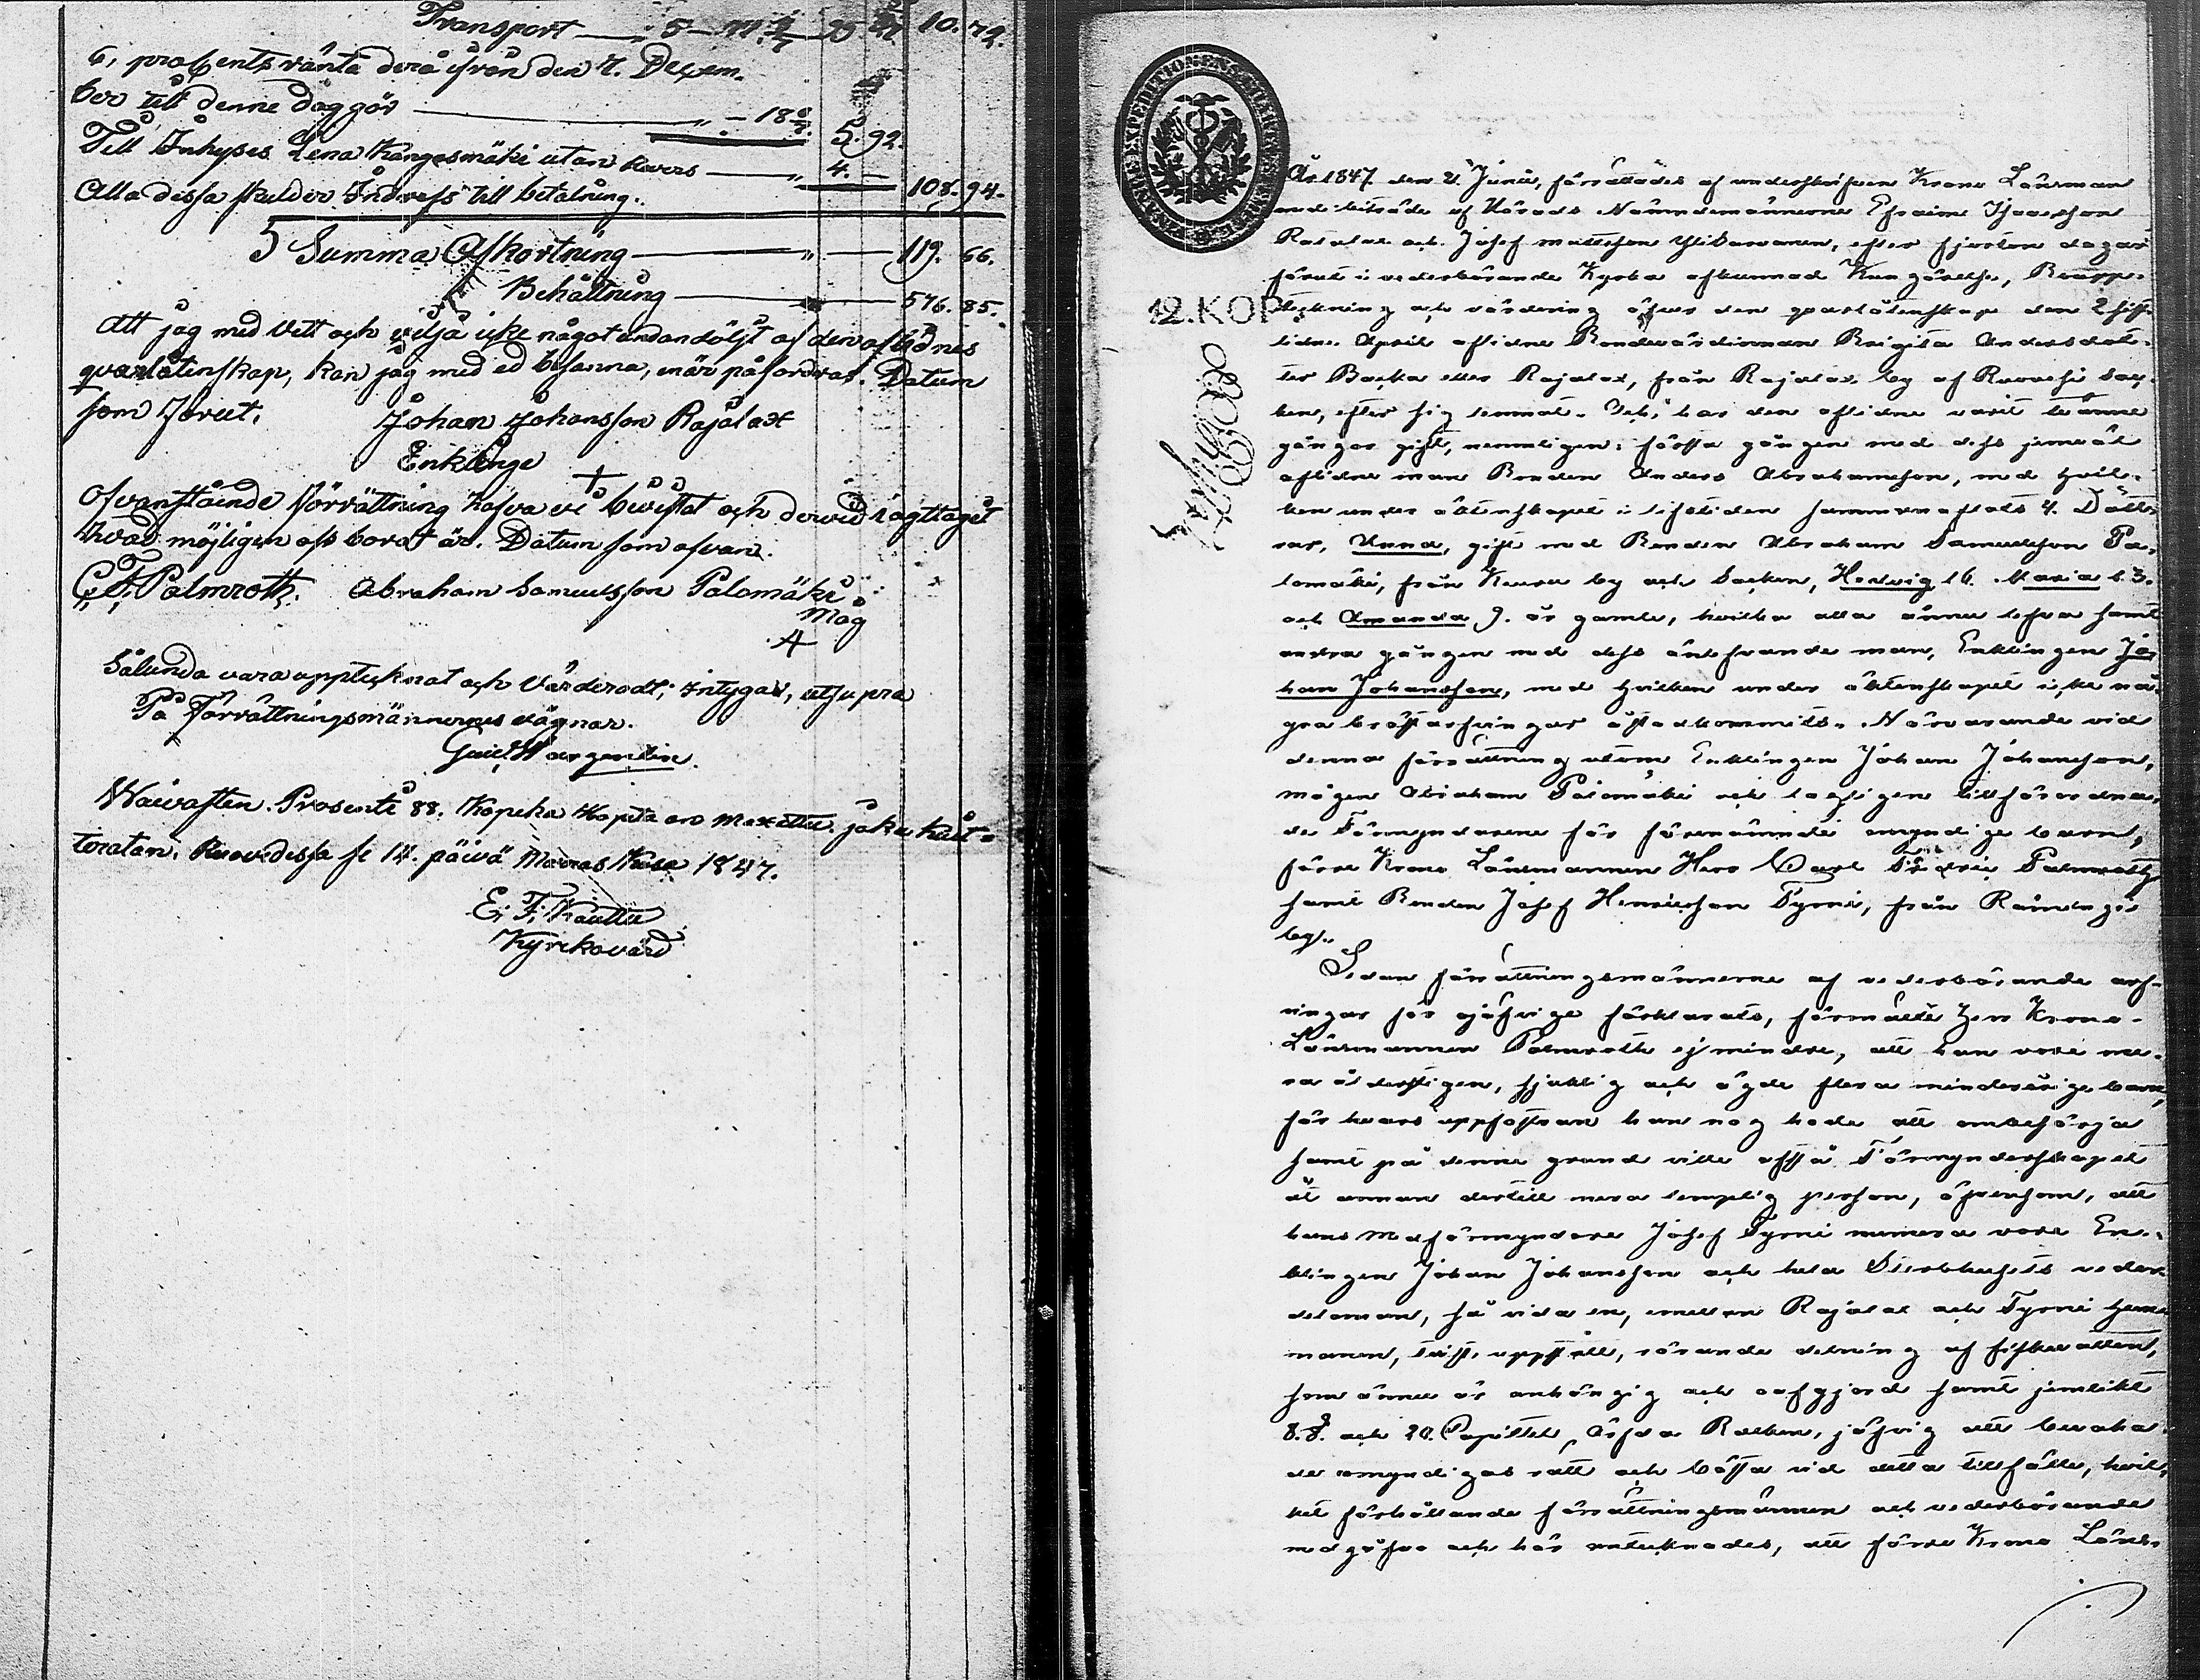 Transport 5 10. 72.
6, procents ränta derå ifrån den 7. Decem-
ber till denne dag gör 18 5. 92.
Till Inhyses Lena Kangasmäki utan Revers 4. —
Alla dessa skulder Indrefs till betalning. 108. 94.
Summa Afkortning 119. 66.
Behållning 576. 85.
Att jag med Vett och vilja icke något undandöljt af den aflednes
qvarlåtenskap, kan jag med ed besanna, när påfordras. Datum
som förut. Johan Johansson Rajalax
Enklinge
Ofvanstående förrättning hafva vi bevistat och dervid iagttagit
hvad möjligen oss borat är. Datum som ofvan.
C. F. Palmroth. Abraham Samuelsson Palomäki
Måg
Sålunda vara upptecknat och Värderadt, intygas, ut supra
På Förrättningsmännernes vägnar.
Wargentin.
Waivasten Prosenti 88. Kopeka Hopia on maxettu. joka kuit-
toratan. Ruovedessa se 14. päivä Marras Kuusa 1847.
E. F. Kauttu
Kyrkovärd
EXPEDITIONENS
12. KOP.
År 1847 den 21 Junii, förrättades af undertecknen Krono Länsman
med biträde af Härads Nämndemännerne Efraim
och Josef Mattsson Ylikarvanen, efter fjorton dagar
förut i vederbörande Kyrka afkunnad Kungörelse, Boupp-
teckning och värdering öfver den qvarlåtenskap den 2 sist-
lidne April aflidne Bondevärdinnan Brigita Andersdot-
ter Backa eller Rajalax, från Rajalax by af Ruovesi Sock-
en, efter sig lemnat. har den aflidne varit tvänne
gånger gift, nemligen: första gången med dess jemväl
aflidne man Bonden Anders Abrahamsson, med hvil-
ken under äktenskapet i lifstiden sammanaflats 4. Dött-
rar, Anna, gift med Bonden Abraham Samuelsson Pa-
lomäki, från Keuru by och Socken, Hedvig 16. Maria 13.
och Amanda 9. år gamla, hvilka alla ännu lefva samt
andra gången med dess änlefvande man, Enklingen Jo-
han Johansson, med hvilken under äktenskapet icke nå-
gra bröstarfvingar åstadkommits. Närvarande vid
denna förrättning utom Enklingen Johan Johansson,
mågen Abraham Palomäki och lagligen tillförordna-
de Förmyndarene för förenämnde omyndige barn,
förre Krono Länsmannen Herr Carl Fredric Palmroth
samt Bonden Josef Henricsson Tyrni, från
by.
Sedan förrättningsmännerne af vederbörande arf-
vingar för ojäfvige förklarats, förmälte Herr Krono-
Länsmannen Palmroth ej mindre, att han vore me-
ra ålderstigen, sjuklig och ägde flera minderårige barn,
för hvars uppfostran han nog hade att ombesörja
samt på denne grund ville afstå Förmynderskapet
åt annan dertill mera lämplig person, äfvensom, att
hans Medförmyndare Josef Tyrni numera vore En-
klingen Johan Johansson och hela Sterbhusets veder-
deloman, så vida en, emellan Rajalax och Tyrni hem-
manen, tvist uppstått, rörande delning af fiskevatten,
som ännu är anhängig och oafgjord samt jemlikt
8. §. och 20. Capittel Ärfda Balken, jäfvig att bevaka
de omyndigas rätt och bästa vid detta tillfälle, hvil-
ket förhållande förrättningsmännen och vederbörande
medgåfvo och här antecknades, att förre Krono Läns-